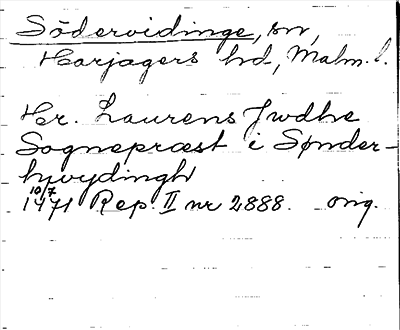 Södervidinge, sn,
Harjagers hd, Malm. l.
Hr. Laurens Jwdhe
Sognepræst i Sønder-
hwydingh
10/7
1471 Rep. II nr 2888. orig.